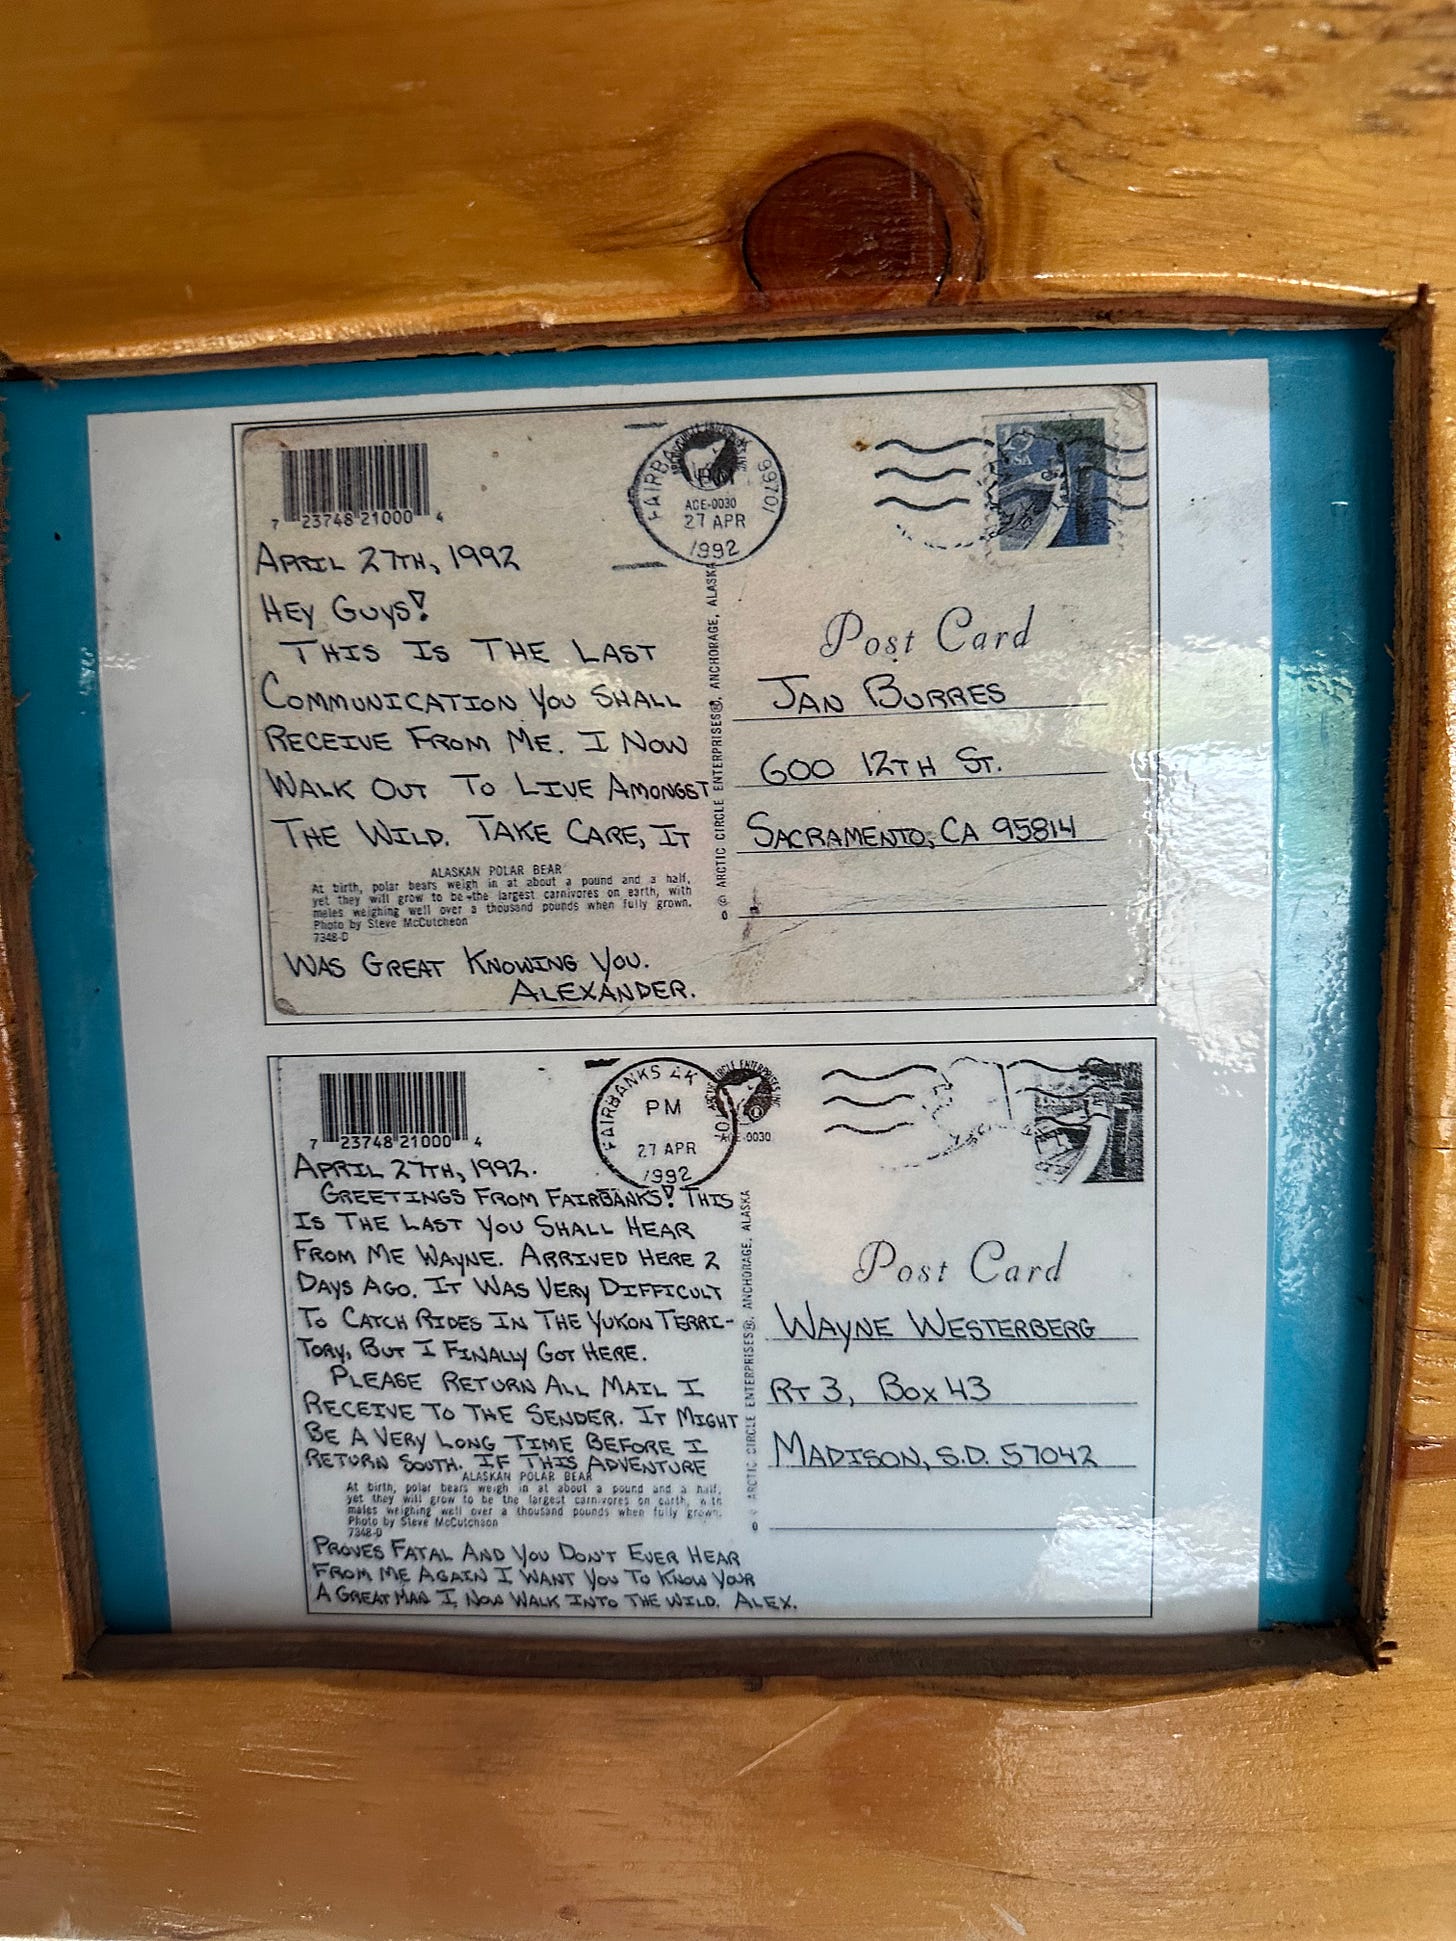 7 23748 21000 4
FAIRBA 99701
ACE-0030
27 APR
1992
USA
APRIL 27TH, 1992
HEY GUYS!
THIS IS THE LAST
COMMUNICATION YOU SHALL
RECEIVE FROM ME. I NOW
WALK OUT TO LIVE AMONGST
THE WILD. TAKE CARE, IT
ALASKAN POLAR BEAR
At birth, polar bears weigh in at about a pound and a half,
yet they will grow to be the largest carnivores on earth, with
males weighing well over a thousand pounds when fully grown.
Photo by Steve McCutcheon
7348-D
WAS GREAT KNOWING YOU.
ALEXANDER.
© ARCTIC CIRCLE ENTERPRISES®, ANCHORAGE, ALASKA
Post Card
JAN BURRES
600 12TH ST.
SACRAMENTO, CA 95814
7 23748 21000 4
FAIRBANKS AK
PM
27 APR
1992
ARCTIC CIRCLE ENTERPRISES INC
ACE-0030
APRIL 27TH, 1992.
GREETINGS FROM FAIRBANKS! THIS
IS THE LAST YOU SHALL HEAR
FROM ME WAYNE. ARRIVED HERE 2
DAYS AGO. IT WAS VERY DIFFICULT
TO CATCH RIDES IN THE YUKON TERRI-
TORY, BUT I FINALLY GOT HERE.
PLEASE RETURN ALL MAIL I
RECEIVE TO THE SENDER. IT MIGHT
BE A VERY LONG TIME BEFORE I
RETURN SOUTH. IF THIS ADVENTURE
ALASKAN POLAR BEAR
At birth, polar bears weigh in at about a pound and a half,
yet they will grow to be the largest carnivores on earth, with
males weighing well over a thousand pounds when fully grown.
Photo by Steve McCutcheon
7348-D
PROVES FATAL AND YOU DON'T EVER HEAR
FROM ME AGAIN I WANT YOU TO KNOW YOUR
A GREAT MAN I NOW WALK INTO THE WILD. ALEX.
© ARCTIC CIRCLE ENTERPRISES®, ANCHORAGE, ALASKA
Post Card
WAYNE WESTERBERG
RT 3, BOX 43
MADISON, S.D. 57042